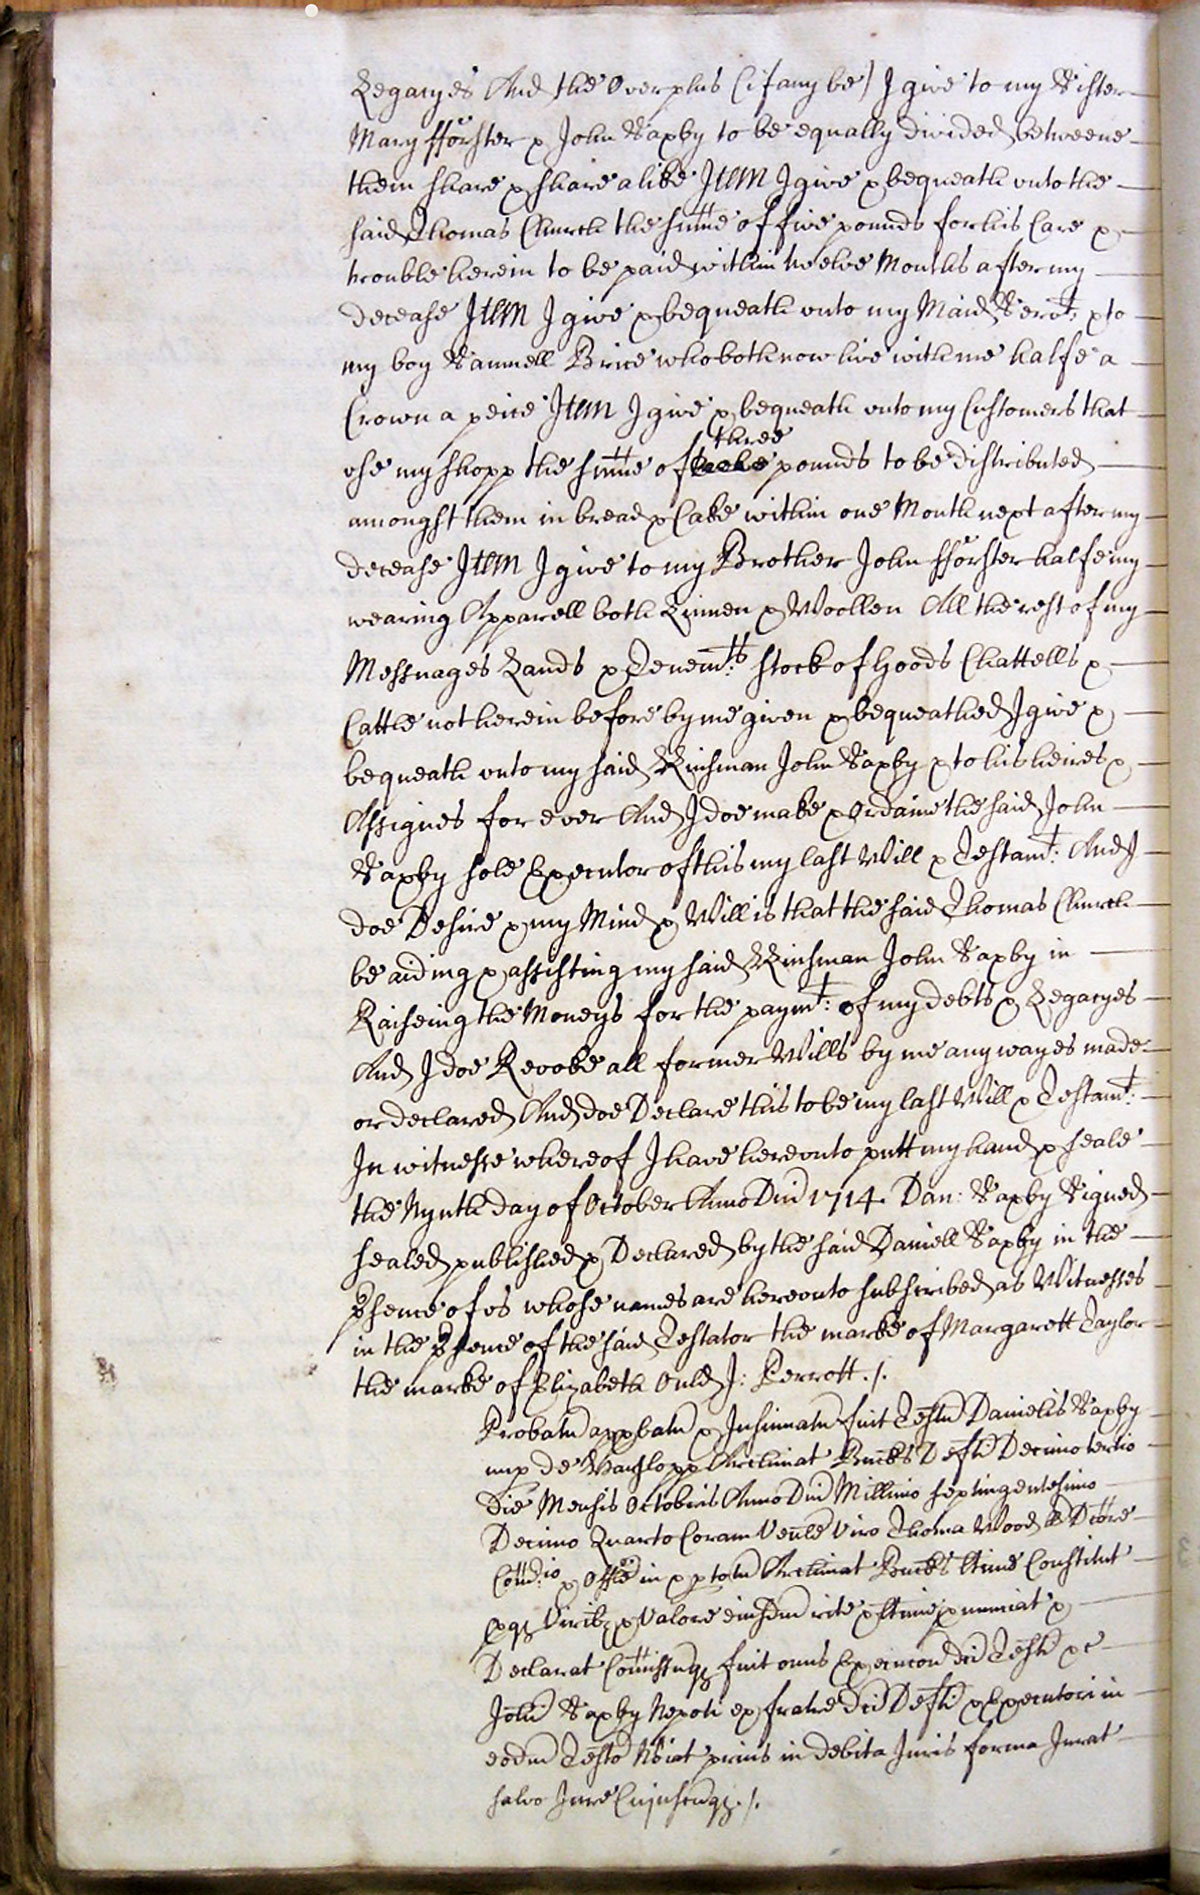 Legacyes And the Overplus (if any be) I give to my Sister
Mary fforster & John Saxby to be equally divided betweene
them share & share alike Item I give & bequeath unto the
said Thomas Church the summe of five pounds for his Care &
trouble herein to be paid within twelve Months after my
decease Item I give & bequeath unto my Maid Servt: & to
my boy Samuell Brice who both now live with me halfe a
Crown a peice Item I give & bequeath unto my Customers that
use my shopp the summe of three pounds to be distributed
amongst them in bread & Cake within one Month next after my
decease Item I give to my Brother John fforster halfe my
wearing Apparell both Linnen & Woollen All the rest of my
Messuages Lands & Tenemts: stock of Goods Chattells &
Cattle not herein before by me given & bequeathed I give &
bequeath unto my said Kinsman John Saxby & to his heires &
Assignes for ever And I doe make & Ordaine the said John
Saxby sole Executor of this my last Will & Testamt: And I
doe Desire & my Mind & Will is that the said Thomas Church
be aiding & assisting my said Kinsman John Saxby in
Raiseing the Moneys for the paymt: of my debts & Legacyes
And I doe Revoke all former Wills by me any wayes made
or declared And doe Declare this to be my last Will & Testamt:
In witnesse whereof I have hereunto putt my hand & seale
the Nynth day of October Anno Dni 1714. Dan: Saxby Signed
sealed published & Declared by the said Daniell Saxby in the
psence of us whose names are hereunto subscribed as Witnesses
in the psence of the said Testator the marke of Margarett Taylor
the marke of Elizabeth Ould J: Perrott ./.
Probatu approbatu & Insinuatu fuit Testu Danielis Saxby
nup de Hanslopp Archinat Bucks Defti Decimo tertio
die Mensis Octobris Anno Dni Millimo septingentesimo
Decimo Quarto Coram Venle Viro Thoma Wood LL Dtore
Comrio & Offle in & p totu Archinat Bucks ltime Constitut
Exq Virib & Valore eiusdem rite & ltime pnunciat &
Declarat Comissuq fuit onus Execucon dci Testi &c
Johi Saxby Nepoti ex fratre dci Defti & Executori in
eodm Testo Noiat prius in debita Juris forma Jurat
salvo Jure Cujuscuq ./.